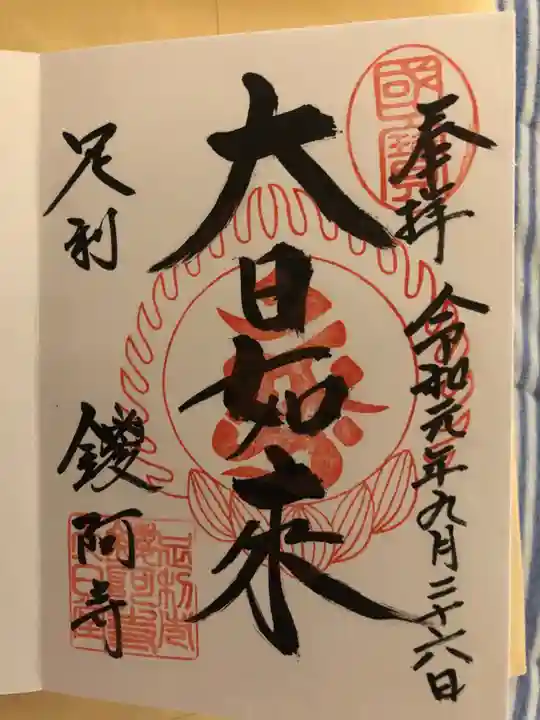 國寶
奉拝
令和元年九月二十六日
大日如来
足利
鑁阿寺